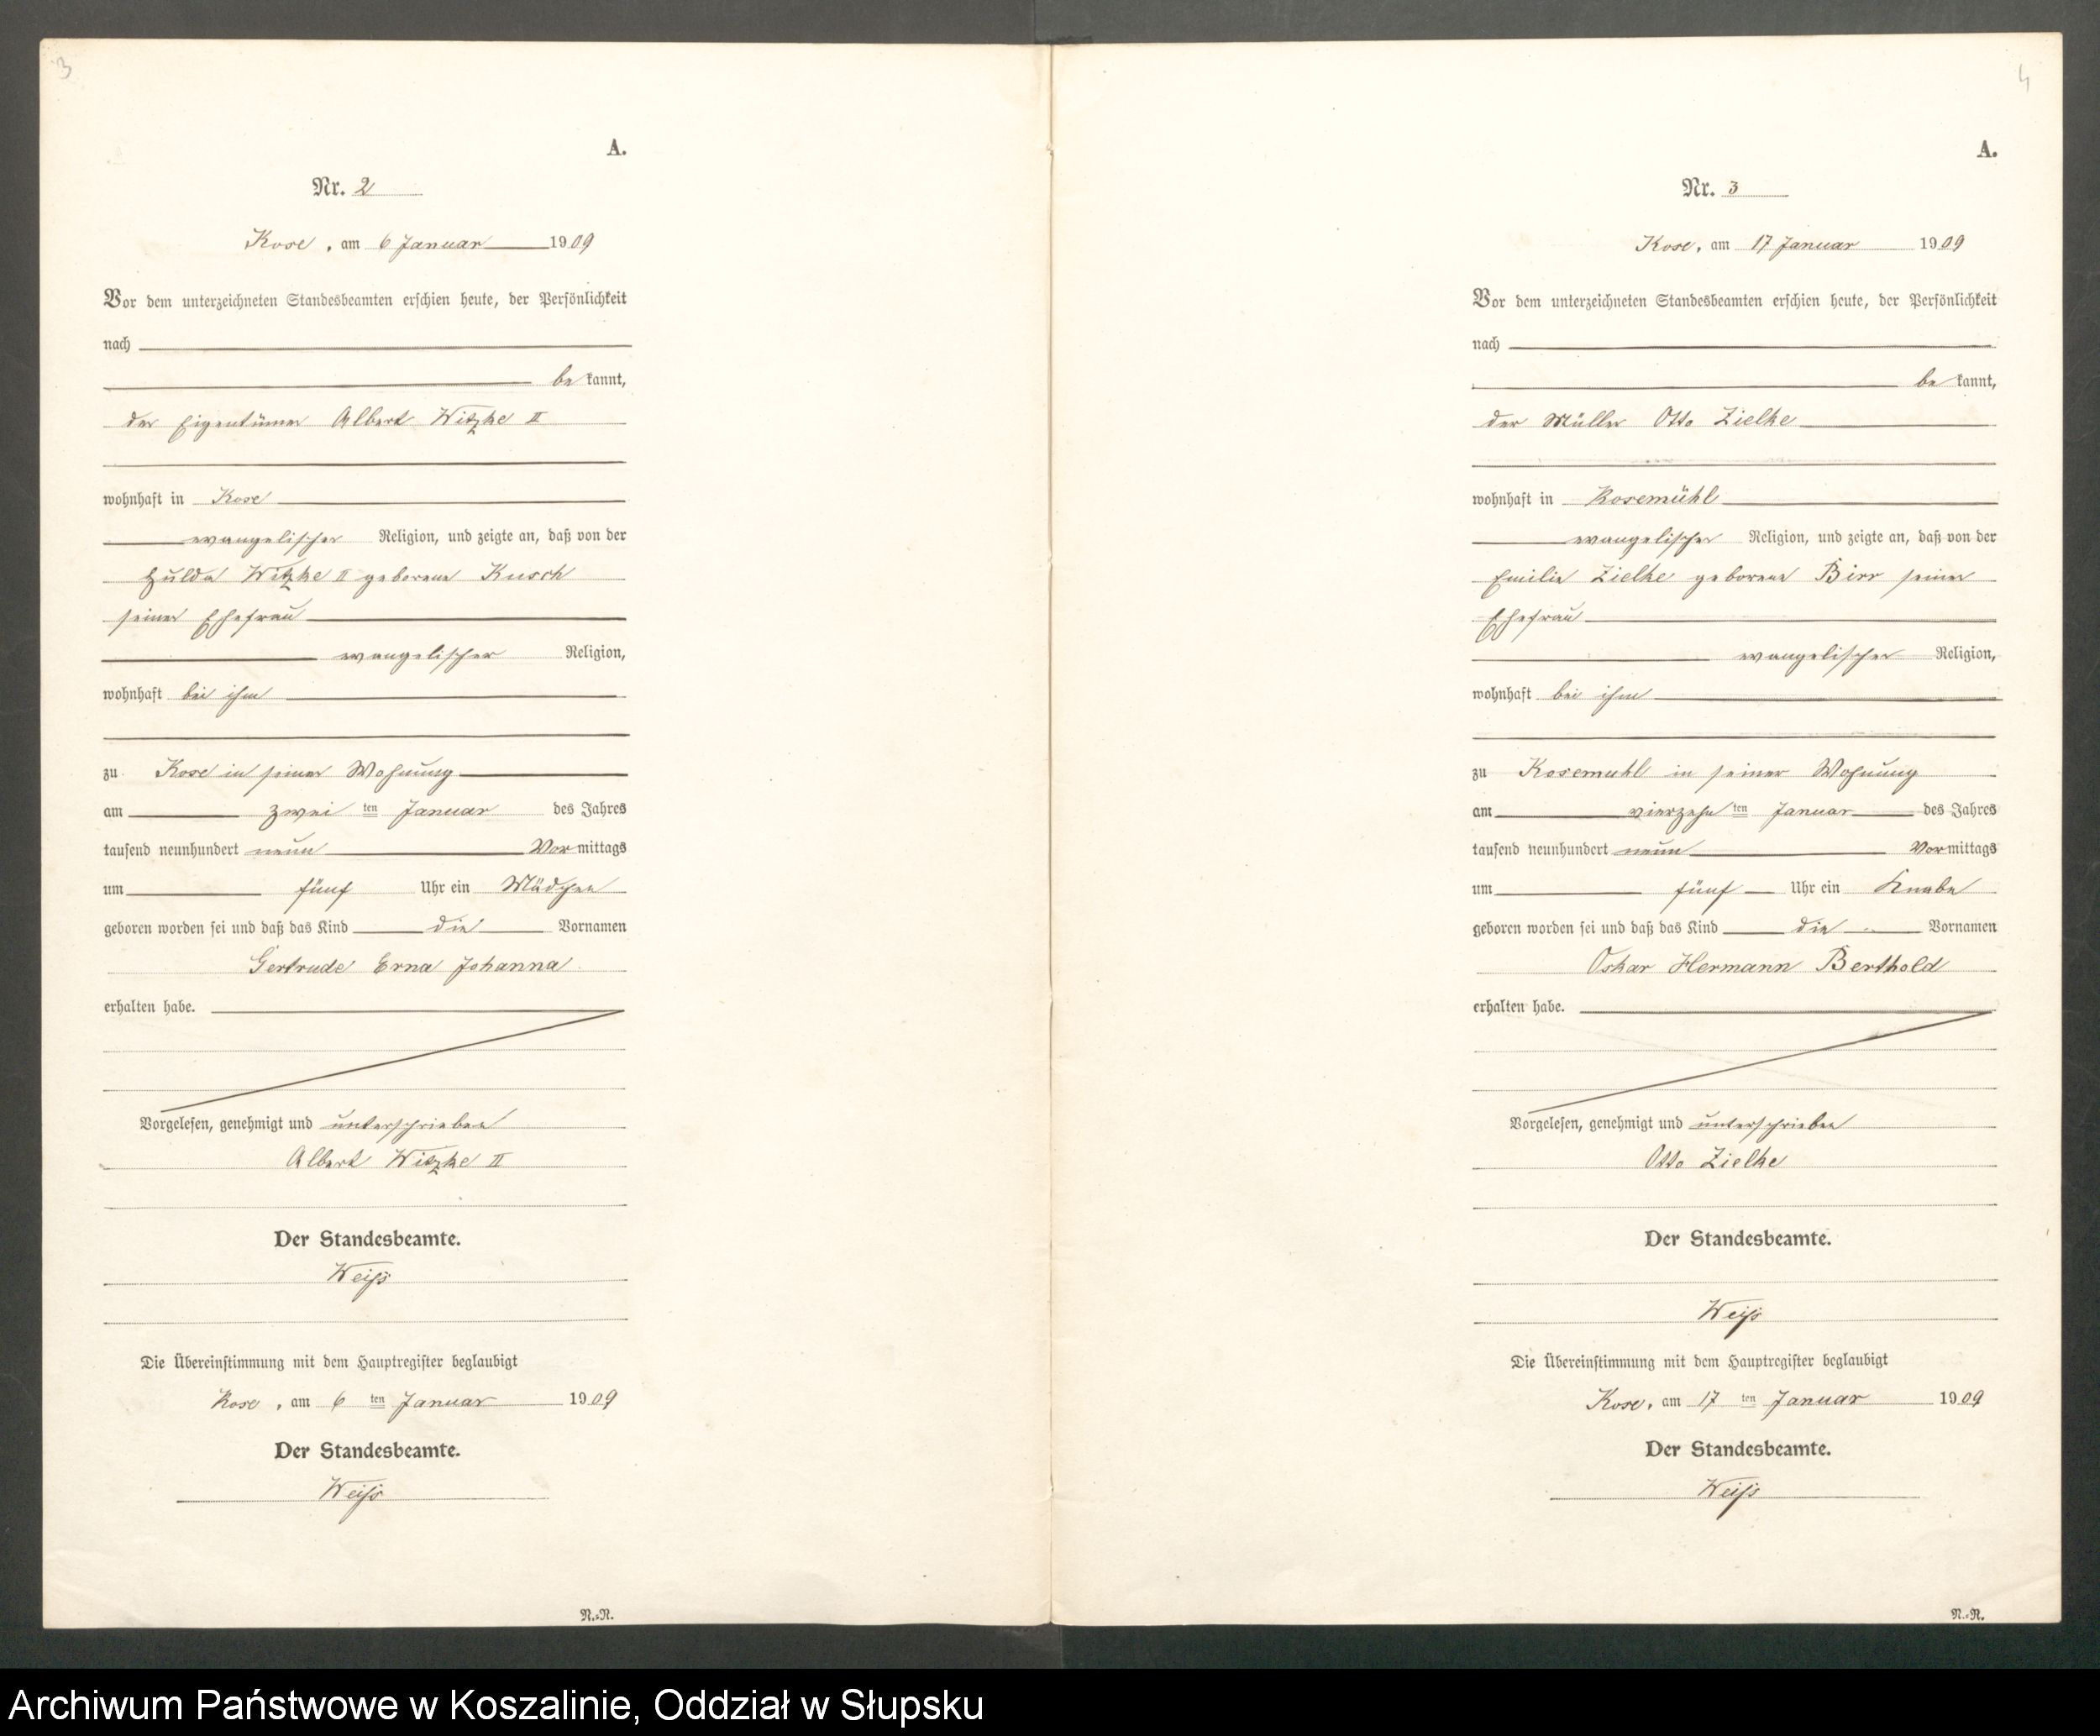 3
A.
Nr. 2
Kose, am 6 Januar 1909
Vor dem unterzeichneten Standesbeamten erschien heute, der Persönlichkeit
nach
be kannt,
der Eigentümer Albert Witzke II
wohnhaft in Kose
evangelischer Religion, und zeigte an, daß von der
Hulda Witzke II geborene Kusch
seiner Ehefrau
evangelischer Religion,
wohnhaft bei ihm
zu Kose in seiner Wohnung
am zwei ten Januar des Jahres
tausend neunhundert neun Vormittags
um fünf Uhr ein Mädchen
geboren worden sei und daß das Kind die Vornamen
Gertrude Erna Johanna
erhalten habe.
Vorgelesen, genehmigt und unterschrieben
Albert Witzke II
Der Standesbeamte.
Weiß
Die Übereinstimmung mit dem Hauptregister beglaubigt
Kose, am 6 ten Januar 1909
Der Standesbeamte.
Weiß
N.-N.
4
A.
Nr. 3
Kose, am 17 Januar 1909
Vor dem unterzeichneten Standesbeamten erschien heute, der Persönlichkeit
nach
be kannt,
der Müller Otto Zielke
wohnhaft in Kosemühl
evangelischer Religion, und zeigte an, daß von der
Emilie Zielke geborene Birr seiner
Ehefrau
evangelischer Religion,
wohnhaft bei ihm
zu Kosemuhl in seiner Wohnung
am vierzehn ten Januar des Jahres
tausend neunhundert neun Vormittags
um fünf Uhr ein Knabe
geboren worden sei und daß das Kind die Vornamen
Oskar Hermann Berthold
erhalten habe.
Vorgelesen, genehmigt und unterschrieben
Otto Zielke
Der Standesbeamte.
Weiß
Die Übereinstimmung mit dem Hauptregister beglaubigt
Kose, am 17 ten Januar 1909
Der Standesbeamte.
Weiß
N.-N.
Archiwum Państwowe w Koszalinie, Oddział w Słupsku